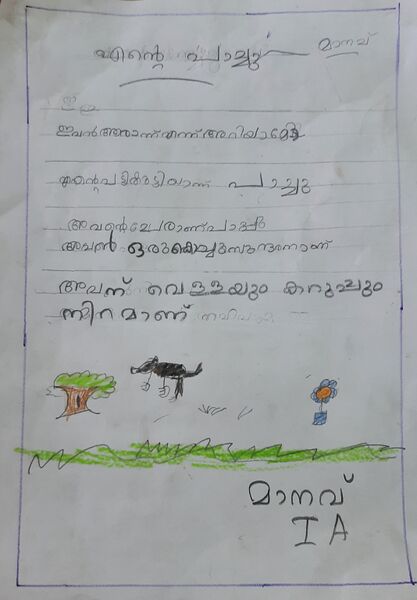 എന്റെ പാച്ചു
മാനവ്
ഇവൻ ആരാണ് എന്ന് അറിയാമോ
എന്റെ പട്ടിക്കുട്ടിയാണ് പാച്ചു
അവന്റെ പേരാണ് പാച്ചു
അവൻ ഒരു കൊച്ചു സുന്ദരനാണ്
അവന് വെള്ളയും കറുപ്പും
നിറമാണ്
മാനവ്
I A